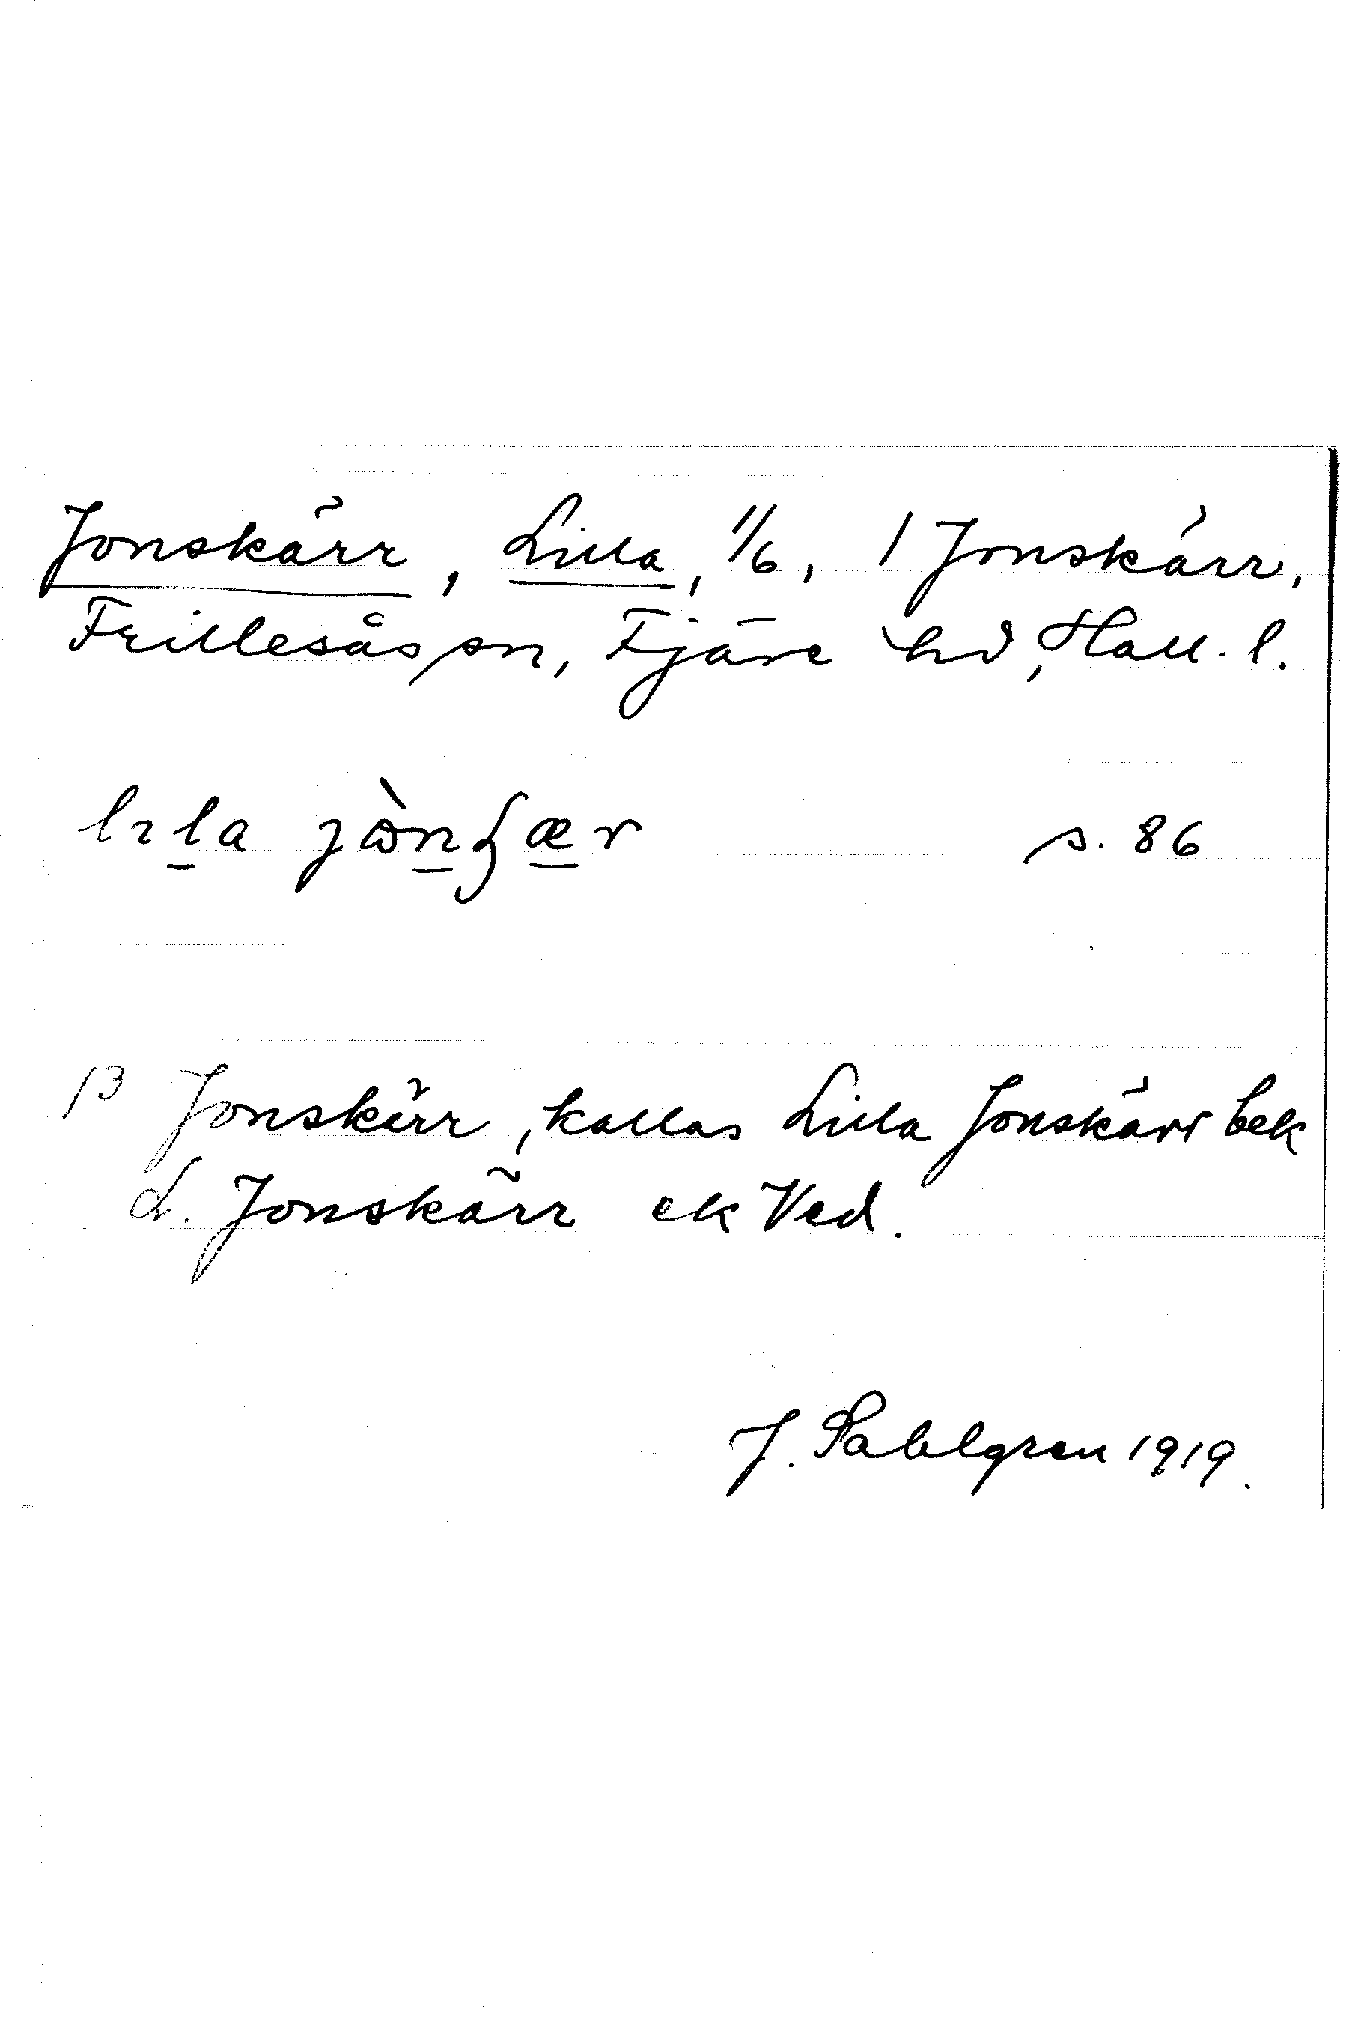 Jonskärr, Lilla, 1/6, 1 Jonskärr,
Frillesås sn, Fjäre hd, Hall. l.
s. 86
13 Jonskärr, kallas Lilla Jonskärr bek
L. Jonskärr ek Ved.
J. Sahlgren 1919.